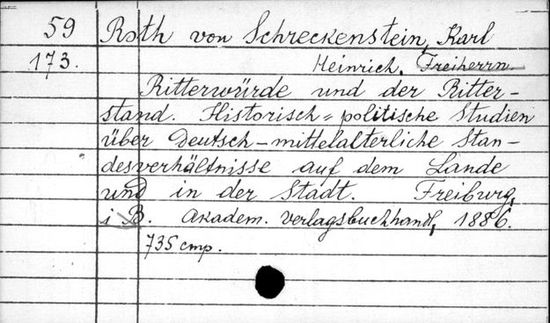 59 Roth von Schreckenstein, Karl
173. Heinrich, Freiherrn
Ritterwürde und der Ritter-
stand. Historisch-politische Studien
über Deutsch-mittelalterliche Stan-
desverhältnisse auf dem Lande
und in der Stadt. Freiburg,
i B. Akadem. Verlagsbuchhandl, 1886.
735 cmp.